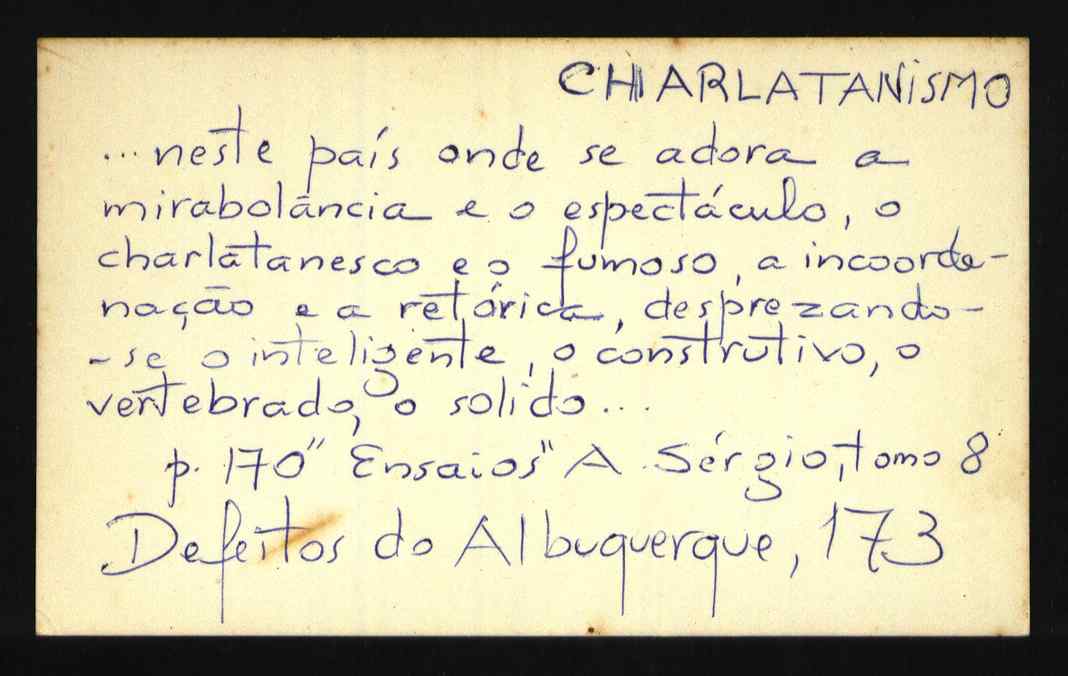 CHARLATANISMO
...neste país onde se adora a
mirabolância e o espectáculo, o
charlatanesco e o fumoso, a incoorde-
nação e a retórica, desprezando-
-se o inteligente, o construtivo, o
vertebrado, o solido...
p. 170 "Ensaios" A. Sérgio, tomo 8
Defeitos do Albuquerque, 173